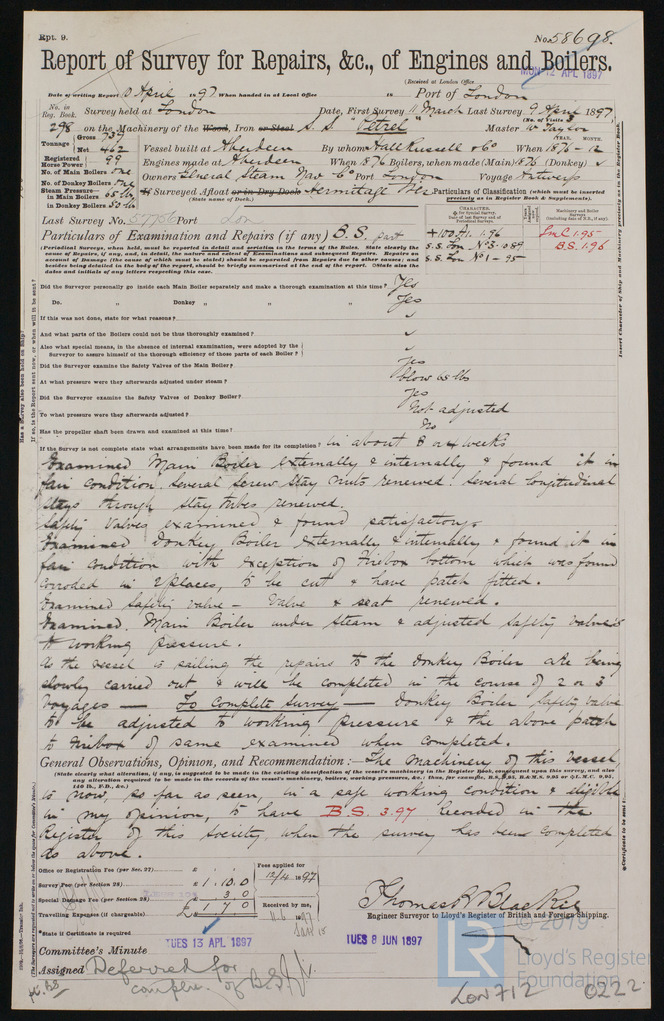 Rpt. 9.
No. 58698.
Report of Survey for Repairs, &c., of Engines and Boilers.
(Received at London Office
MON 12 APL 1897
Date of writing Report 10 April 1897 When handed in at Local Office 18 Port of London
No. in Reg. Book. Survey held at London Date, First Survey 11 March Last Survey 9 April 1897
(No. of Visits 3
298 on the Machinery of the Wood, Iron or Steel S.S. "Petrel" Master W Taylor
Tonnage Gross 739 Net 462 Vessel built at Aberdeen By whom Hall Russell & Co When 1876-12
YEAR. MONTH.
Registered Horse Power 99 Engines made at Aberdeen When 1876 Boilers, when made (Main) 1876 (Donkey) ✓
No. of Main Boilers one Owners General Steam Nav. Co Port London Voyage Antwerp
No. of Donkey Boilers one
Steam Pressure— in Main Boilers 65 lbs in Donkey Boilers 50 lbs
If Surveyed Afloat or in Dry Dock Hermitage
(State name of Dock.)
Particulars of Classification (which must be inserted precisely as in Register Book & Supplements).
Last Survey No. Port Lon
Particulars of Examination and Repairs (if any) B.S. part
CHARACTER.
Machinery and Boiler Surveys
+100A1. 1.96
S.S. Lon No 3-89
S.S. Lon No 1-95
LMC 1.95
B.S. 1.96
(Periodical Surveys, when held, must be reported in detail and seriatim in the terms of the Rules. State clearly the cause of Repairs, if any, and, in detail, the nature and extent of Examinations and subsequent Repairs. Repairs on account of Damage (the cause of which must be stated) should be separated from Repairs due to other causes; and besides being detailed in the body of the report, should be briefly summarized at the end of the report. State also the dates and initials of any letters respecting this case.
Did the Surveyor personally go inside each Main Boiler separately and make a thorough examination at this time? Yes
Do. „ Donkey „ „ „ Yes
If this was not done, state for what reasons? ✓
And what parts of the Boilers could not be thus thoroughly examined? ✓
Also what special means, in the absence of internal examination, were adopted by the Surveyor to assure himself of the thorough efficiency of those parts of each Boiler? ✓
Did the Surveyor examine the Safety Valves of the Main Boiler? Yes
At what pressure were they afterwards adjusted under steam? blow 65 lbs
Did the Surveyor examine the Safety Valves of Donkey Boiler? Yes
To what pressure were they afterwards adjusted? Not adjusted
Has the propeller shaft been drawn and examined at this time? No
If the Survey is not complete state what arrangements have been made for its completion? in about 3 or 4 weeks
Examined Main Boiler externally & internally & found it in
fair condition. Several screw stay nuts renewed. Several longitudinal
stays through stay tubes renewed.
Safety valves examined & found satisfactory.
Examined Donkey Boiler externally & internally & found it in
fair condition with exception of Firebox bottom which was found
corroded in 2 places, to be cut & have patch fitted.
Examined Safety valve – valve & seat renewed.
Examined Main Boiler under steam & adjusted safety valves
to working pressure.
As the vessel is sailing the repairs to the Donkey Boiler are being
slowly carried out & will be completed in the course of 2 or 3
voyages — To Complete Survey — Donkey Boiler safety valve
to be adjusted to working pressure & the above patch
to firebox of same examined when completed.
General Observations, Opinion, and Recommendation:— The Machinery of this vessel
(State clearly what alteration, if any, is suggested to be made in the existing classification of the vessel's machinery in the Register Book, consequent upon this survey, and also any alteration required to be made in the records of the vessel's machinery, boilers, working pressures, &c.; thus, for example, B.S. 9.95, B.&M.S. 9.95 or L.M.C. 9.95, 140 lb., F.D., &c.)
is now, so far as seen, in a safe working condition & eligible
in my opinion, to have B.S. 3.97 recorded in the
Register of this Society when the survey has been completed
as above.
Office or Registration Fee (per Sec. 27)... £ : :
Survey Fee (per Section 28)... £ 1.10.0
Special Damage Fee (per Section 28)... £
Travelling Expenses (if chargeable) £
Fees applied for 12/4 1897
Received by me, 1897
Thomas R Blackie
Engineer Surveyor to Lloyd's Register of British and Foreign Shipping.
*State if Certificate is required
Committee's Minute TUES 13 APL 1897 TUES 8 JUN 1897
Assigned Deferred for
compln. of B.S.
© 2019
LR
Lloyd's Register
Foundation
LON712 0222